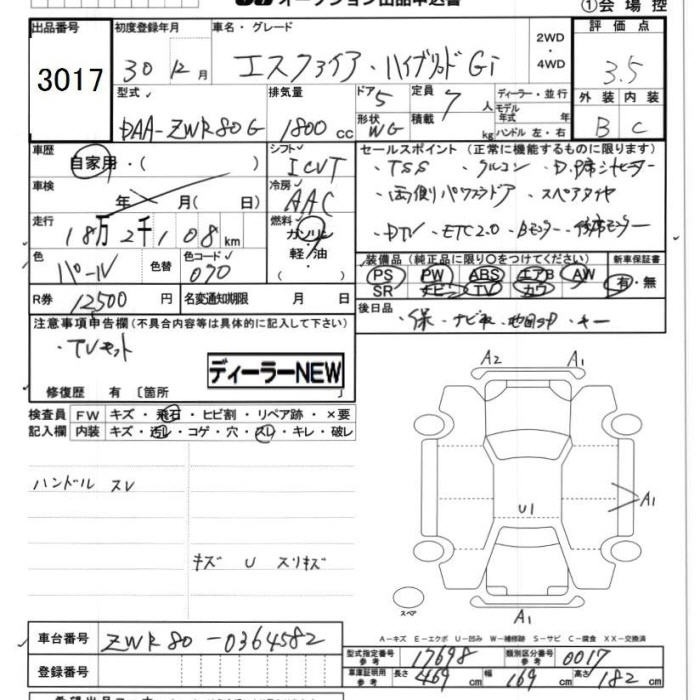 オークション出品申込書
①会場控
出品番号 3017
初度登録年月 30年12月
車名・グレード エスクァイア・ハイブリッドGi
2WD・4WD
評価点 3.5
型式 DAA-ZWR80G
排気量 1800cc
ドア 5
形状 WG
定員 7人
積載 kg
ディーラー・並行
モデル年式 年
ハンドル 左・右
外装 内装
B C
車歴 自家用・( )
シフト ICVT
セールスポイント (正常に機能するものに限ります)
・TSS ・クルコン ・D.P席シートヒーター
・両側パワスラドア ・スペアタイヤ
・DTV ・ETC2.0 ・Bモニター
車検 年 月( 日)
冷房 AAC
走行 18万2千108km
燃料 ガソリン 軽油 ( )
色 パール
色替
色コード 070
装備品 (純正品に限り○をつけてください)
PS PW ABS エアB AW
SR ナビ TV カワ
新車保証書 有・無
R券 12500円
名変通知期限 月 日
後日品 ・保・ナビ取・地図SD・キー
注意事項申告欄(不具合内容等は具体的に記入して下さい)
・TVキット
ディーラーNEW
修復歴 有 〔箇所 〕
検査員記入欄
FW キズ・飛石・ヒビ割・リペア跡・×要
内装 キズ・汚レ・コゲ・穴・スレ・キレ・破レ
ハンドル スレ
キズ U スリキズ
A2 A1
A1
U1
スペア
A1
A-キズ E-エクボ U-凹み W-補修跡 S-サビ C-腐食 XX-交換済
車台番号 ZWR80-0364582
登録番号
型式指定番号 参考 17698
類別区分番号 参考 0017
車庫証明用 参考 長さ 469cm 幅 169cm 高さ 182cm